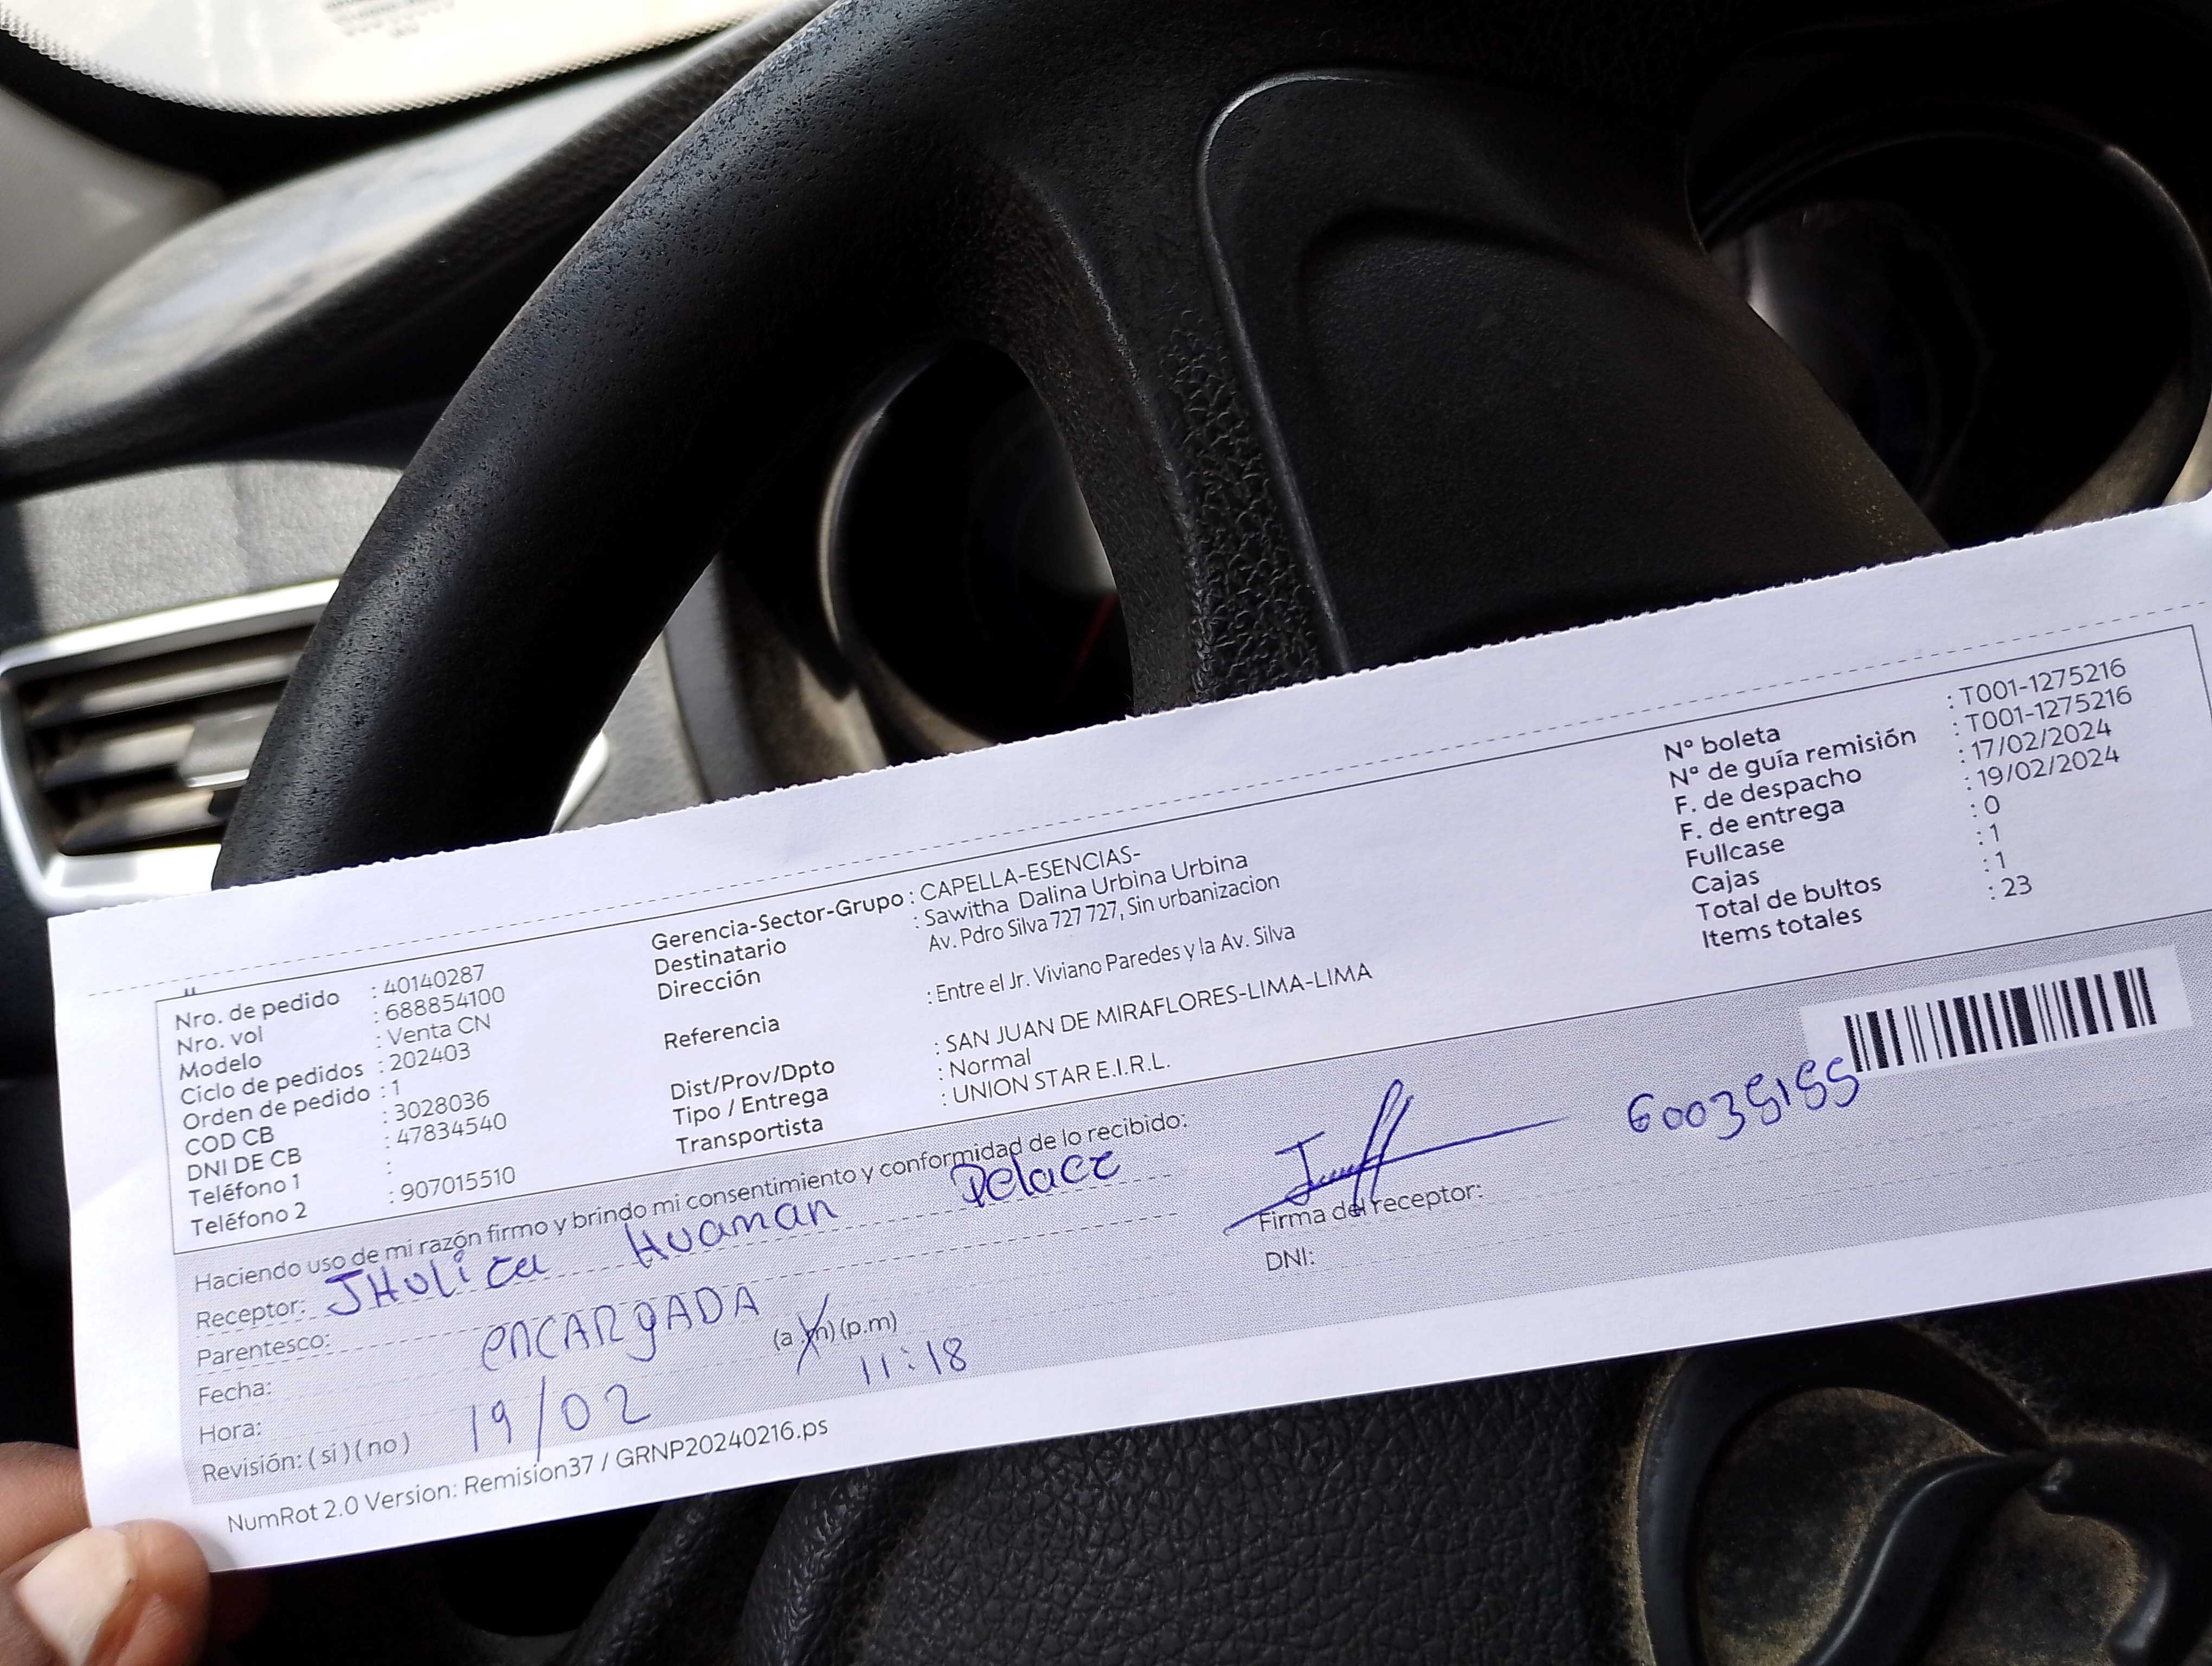 Nro. de pedido : 40140287
Nro. vol : 688854100
Modelo : Venta CN
Ciclo de pedidos : 202403
Orden de pedido : 1
COD CB : 3028036
DNI DE CB : 47834540
Teléfono 1 :
Teléfono 2 : 907015510
Gerencia-Sector-Grupo : CAPELLA-ESENCIAS-
Destinatario : Sawitha Dalina Urbina Urbina
Dirección Av. Pdro Silva 727 727, Sin urbanizacion
Referencia : Entre el Jr. Viviano Paredes y la Av. Silva
Dist/Prov/Dpto : SAN JUAN DE MIRAFLORES-LIMA-LIMA
Tipo / Entrega : Normal
Transportista : UNION STAR E.I.R.L.
N° boleta : T001-1275216
N° de guía remisión : T001-1275216
F. de despacho : 17/02/2024
F. de entrega : 19/02/2024
Fullcase : 0
Cajas : 1
Total de bultos : 1
Items totales : 23
Haciendo uso de mi razón firmo y brindo mi consentimiento y conformidad de lo recibido:
Receptor: Huaman
Parentesco: encargada
Fecha: (a.m) (p.m)
Hora: 19/02 11:18
Revisión: ( si ) ( no )
Firma del receptor:
DNI:
NumRot 2.0 Version: Remision37 / GRNP20240216.ps